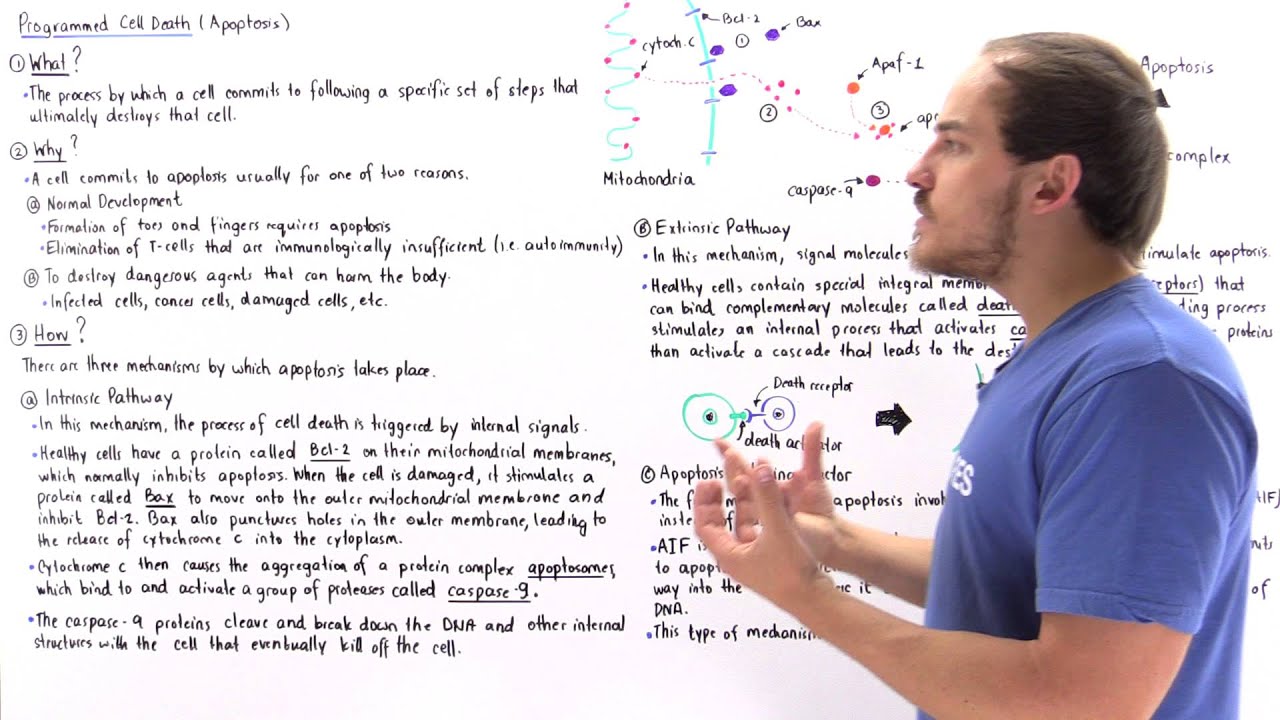 Programmed Cell Death (Apoptosis)
① What?
•The process by which a cell commits to following a specific set of steps that
ultimalely destroys that cell.
② Why?
•A cell commits to apoptosis usually for one of two reasons.
ⓐ Normal Development
•Formation of toes and fingers requires apoptosis
•Elimination of T-cells that are immunologically insufficient (i.e. autoimmunity)
Ⓑ To destroy dangerous agents that can harm the body.
•Infected cells, cancer cells, damaged cells, etc.
③ How?
There are three mechanisms by which apoptosis takes place.
ⓐ Intrinsic Pathway
•In this mechanism, the process of cell death is triggered by internal signals.
•Healthy cells have a protein called Bcl-2 on their mitochondrial membranes,
which normally inhibits apoptosis. When the cell is damaged, it stimulates a
protein called Bax to move onto the outer mitochondrial membrane and
inhibit Bcl-2. Bax also punctures holes in the outer membrane, leading to
the release of cytochrome c into the cytoplasm.
•Cytochrome c then causes the aggregation of a protein complex apoptosomes,
which bind to and activate a group of proteases called caspase-9.
•The caspase-9 proteins cleave and break down the DNA and other internal
structures with the cell that eventually kill off the cell.
Bcl-2
Bax
cytoch.c
①
Apaf-1
Apoptosis
②
③
apo
complex
caspase-9
Mitochondria
Ⓑ Extrinsic Pathway
•In this mechanism, signal molecules stimulate apoptosis.
•Healthy cells contain special integral memb ptors) that
can bind complementary molecules called death ding process
stimulates an internal process that activates ca proteins
than activate a cascade that leads to the des
Death receptor
death activator
Ⓒ Apoptosis
•The apoptosis involv AIF)
instead of
•AIF is
to apop
way into the of
DNA.
•This type of mechanism
ES